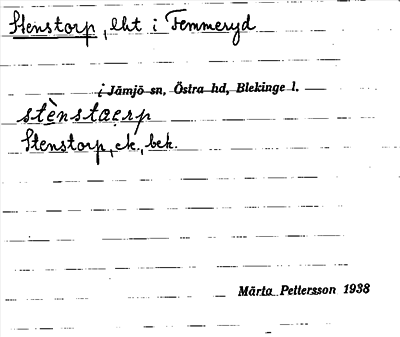 Stenstorp, lht i Femmeryd
i Jämjö sn, Östra hd, Blekinge l.
stènstaerp
Stenstorp, ek., bek.
Märta Pettersson 1938